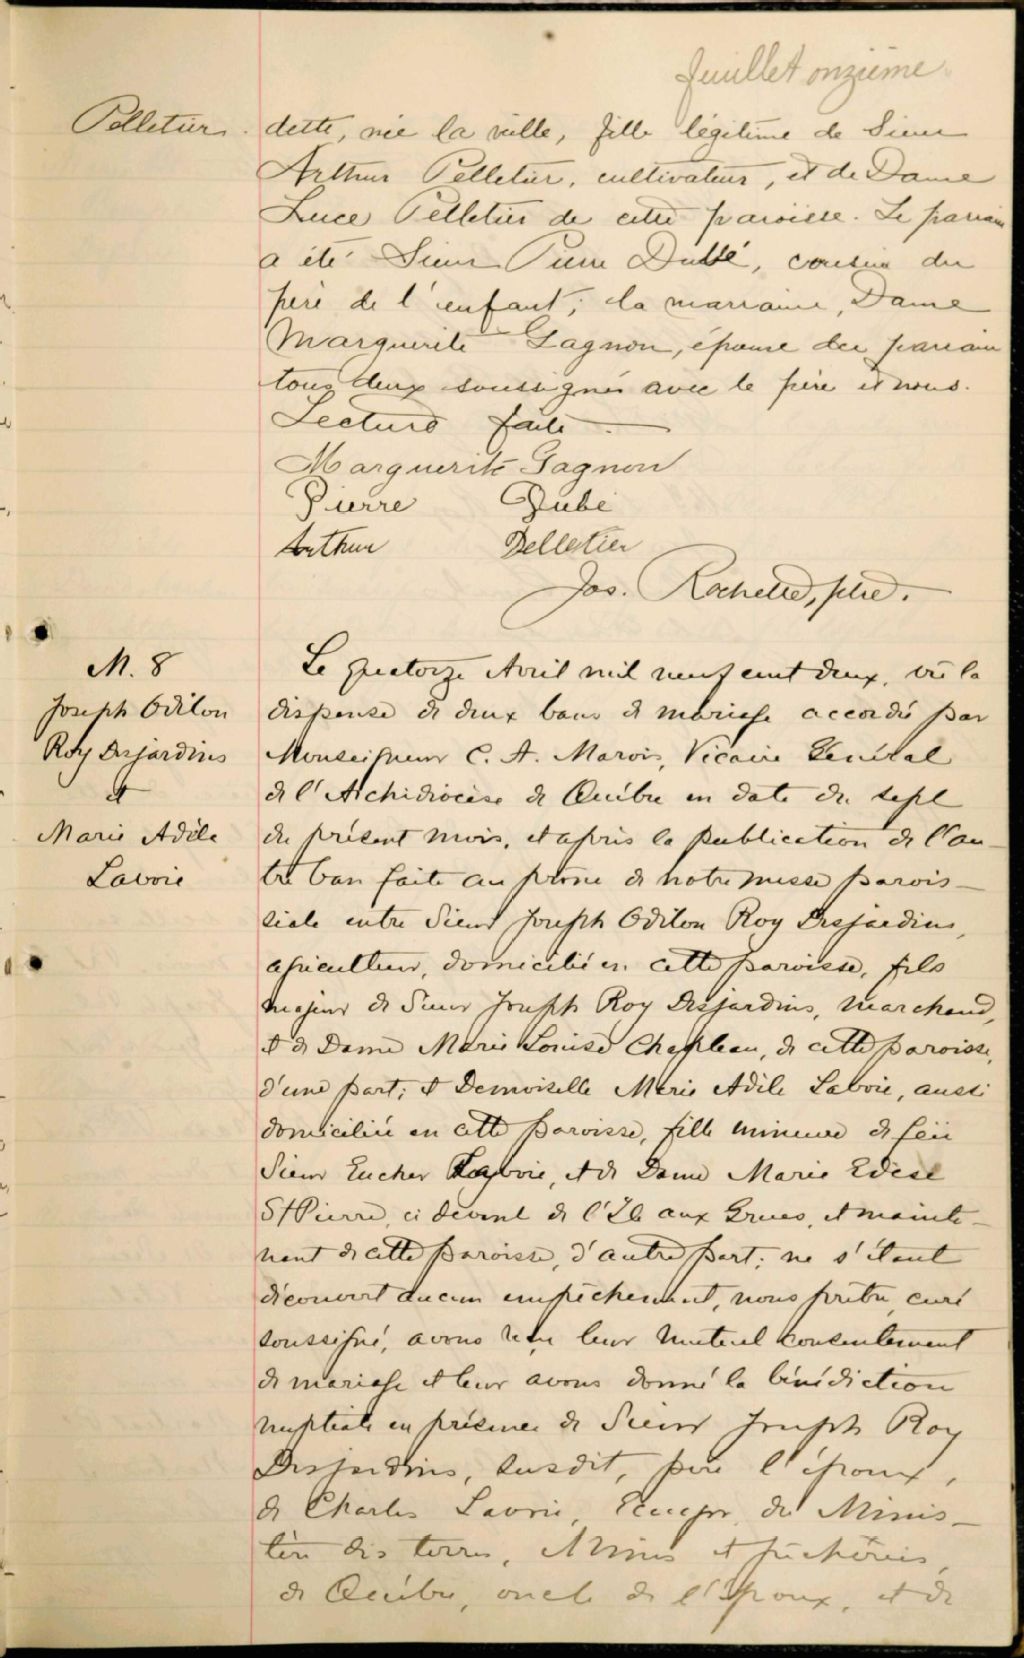 feuillet onzième
Pelletier. dette, née la veille, fille légitime de Sieur
Arthur Pelletier, cultivateur, et de Dame
Luce Pelletier de cette paroisse. Le parrain
a été Sieur Pierre Dubé, cousin du
père de l'enfant; la marraine, Dame
Marguerite Gagnon, épouse du parrain
tous deux soussignés avec le père et nous.
Lecture faite.
Marguerite Gagnon
Pierre Dubé
Arthur Pelletier
Jos. Rochette, ptre.
M. 8
Joseph Odilon
Roy Desjardins
et
Marie Adèle
Lavoie
Le quatorze Avril mil neuf cent deux, vû la
dispense de deux bans de mariage accordée par
Monseigneur C. A. Marois, Vicaire Général
de l'Archidiocèse de Québec en date du sept
du présent mois, et après la publication de l'au-
tre ban faite au prône de notre messe parois-
siale entre Sieur Joseph Odilon Roy Desjardins,
agriculteur, domicilié en cette paroisse, fils
majeur de Sieur Joseph Roy Desjardins, marchand,
et de Dame Marie Louise Chapleau, de cette paroisse,
d'une part; et Demoiselle Marie Adèle Lavoie, aussi
domiciliée en cette paroisse, fille mineure de feu
Sieur Eucher Lavoie, et de Dame Marie
St Pierre, ci devant de l'Ile aux Grues, et mainte-
nant de cette paroisse, d'autre part; ne s'étant
découvert aucun empêchement, nous prêtre curé
soussigné, avons reçu leur mutuel consentement
de mariage et leur avons donné la bénédiction
nuptiale en présence de Sieur Joseph Roy
Desjardins, susdit, père l'époux,
de Charles Lavoie, du Minis-
tère des terres, Mines et pêcheries,
de Québec, oncle de l'époux, et de